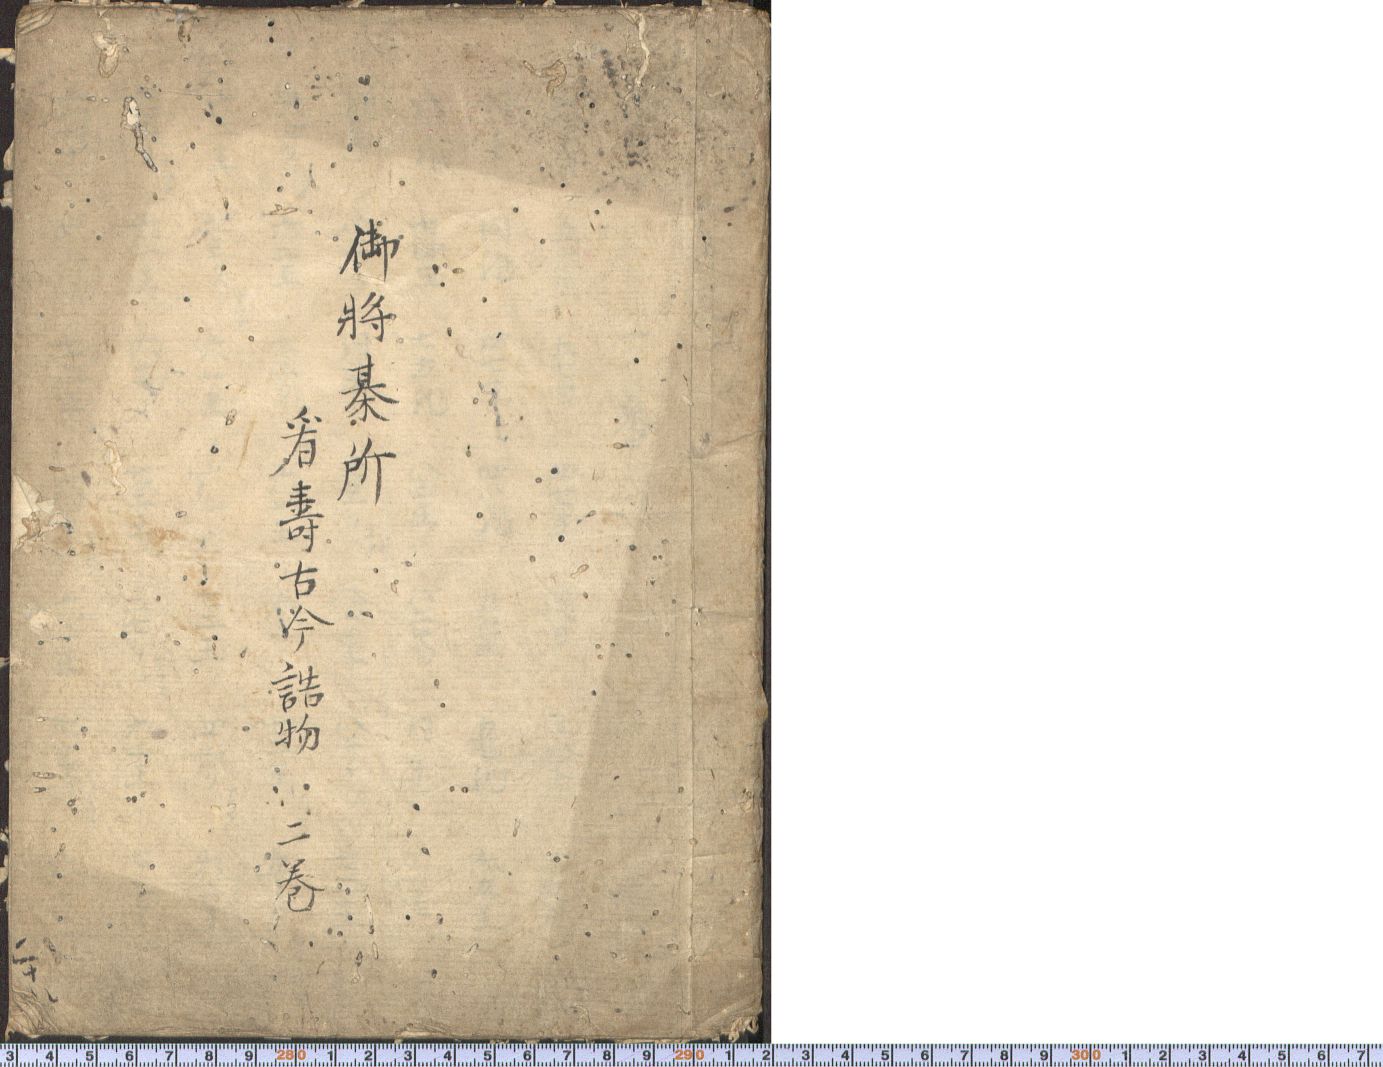 御將棊所
看壽古今詰物
二巻
二十八
3 4 5 6 7 8 9 280 1 2 3 4 5 6 7 8 9 290 1 2 3 4 5 6 7 8 9 300 1 2 3 4 5 6 7